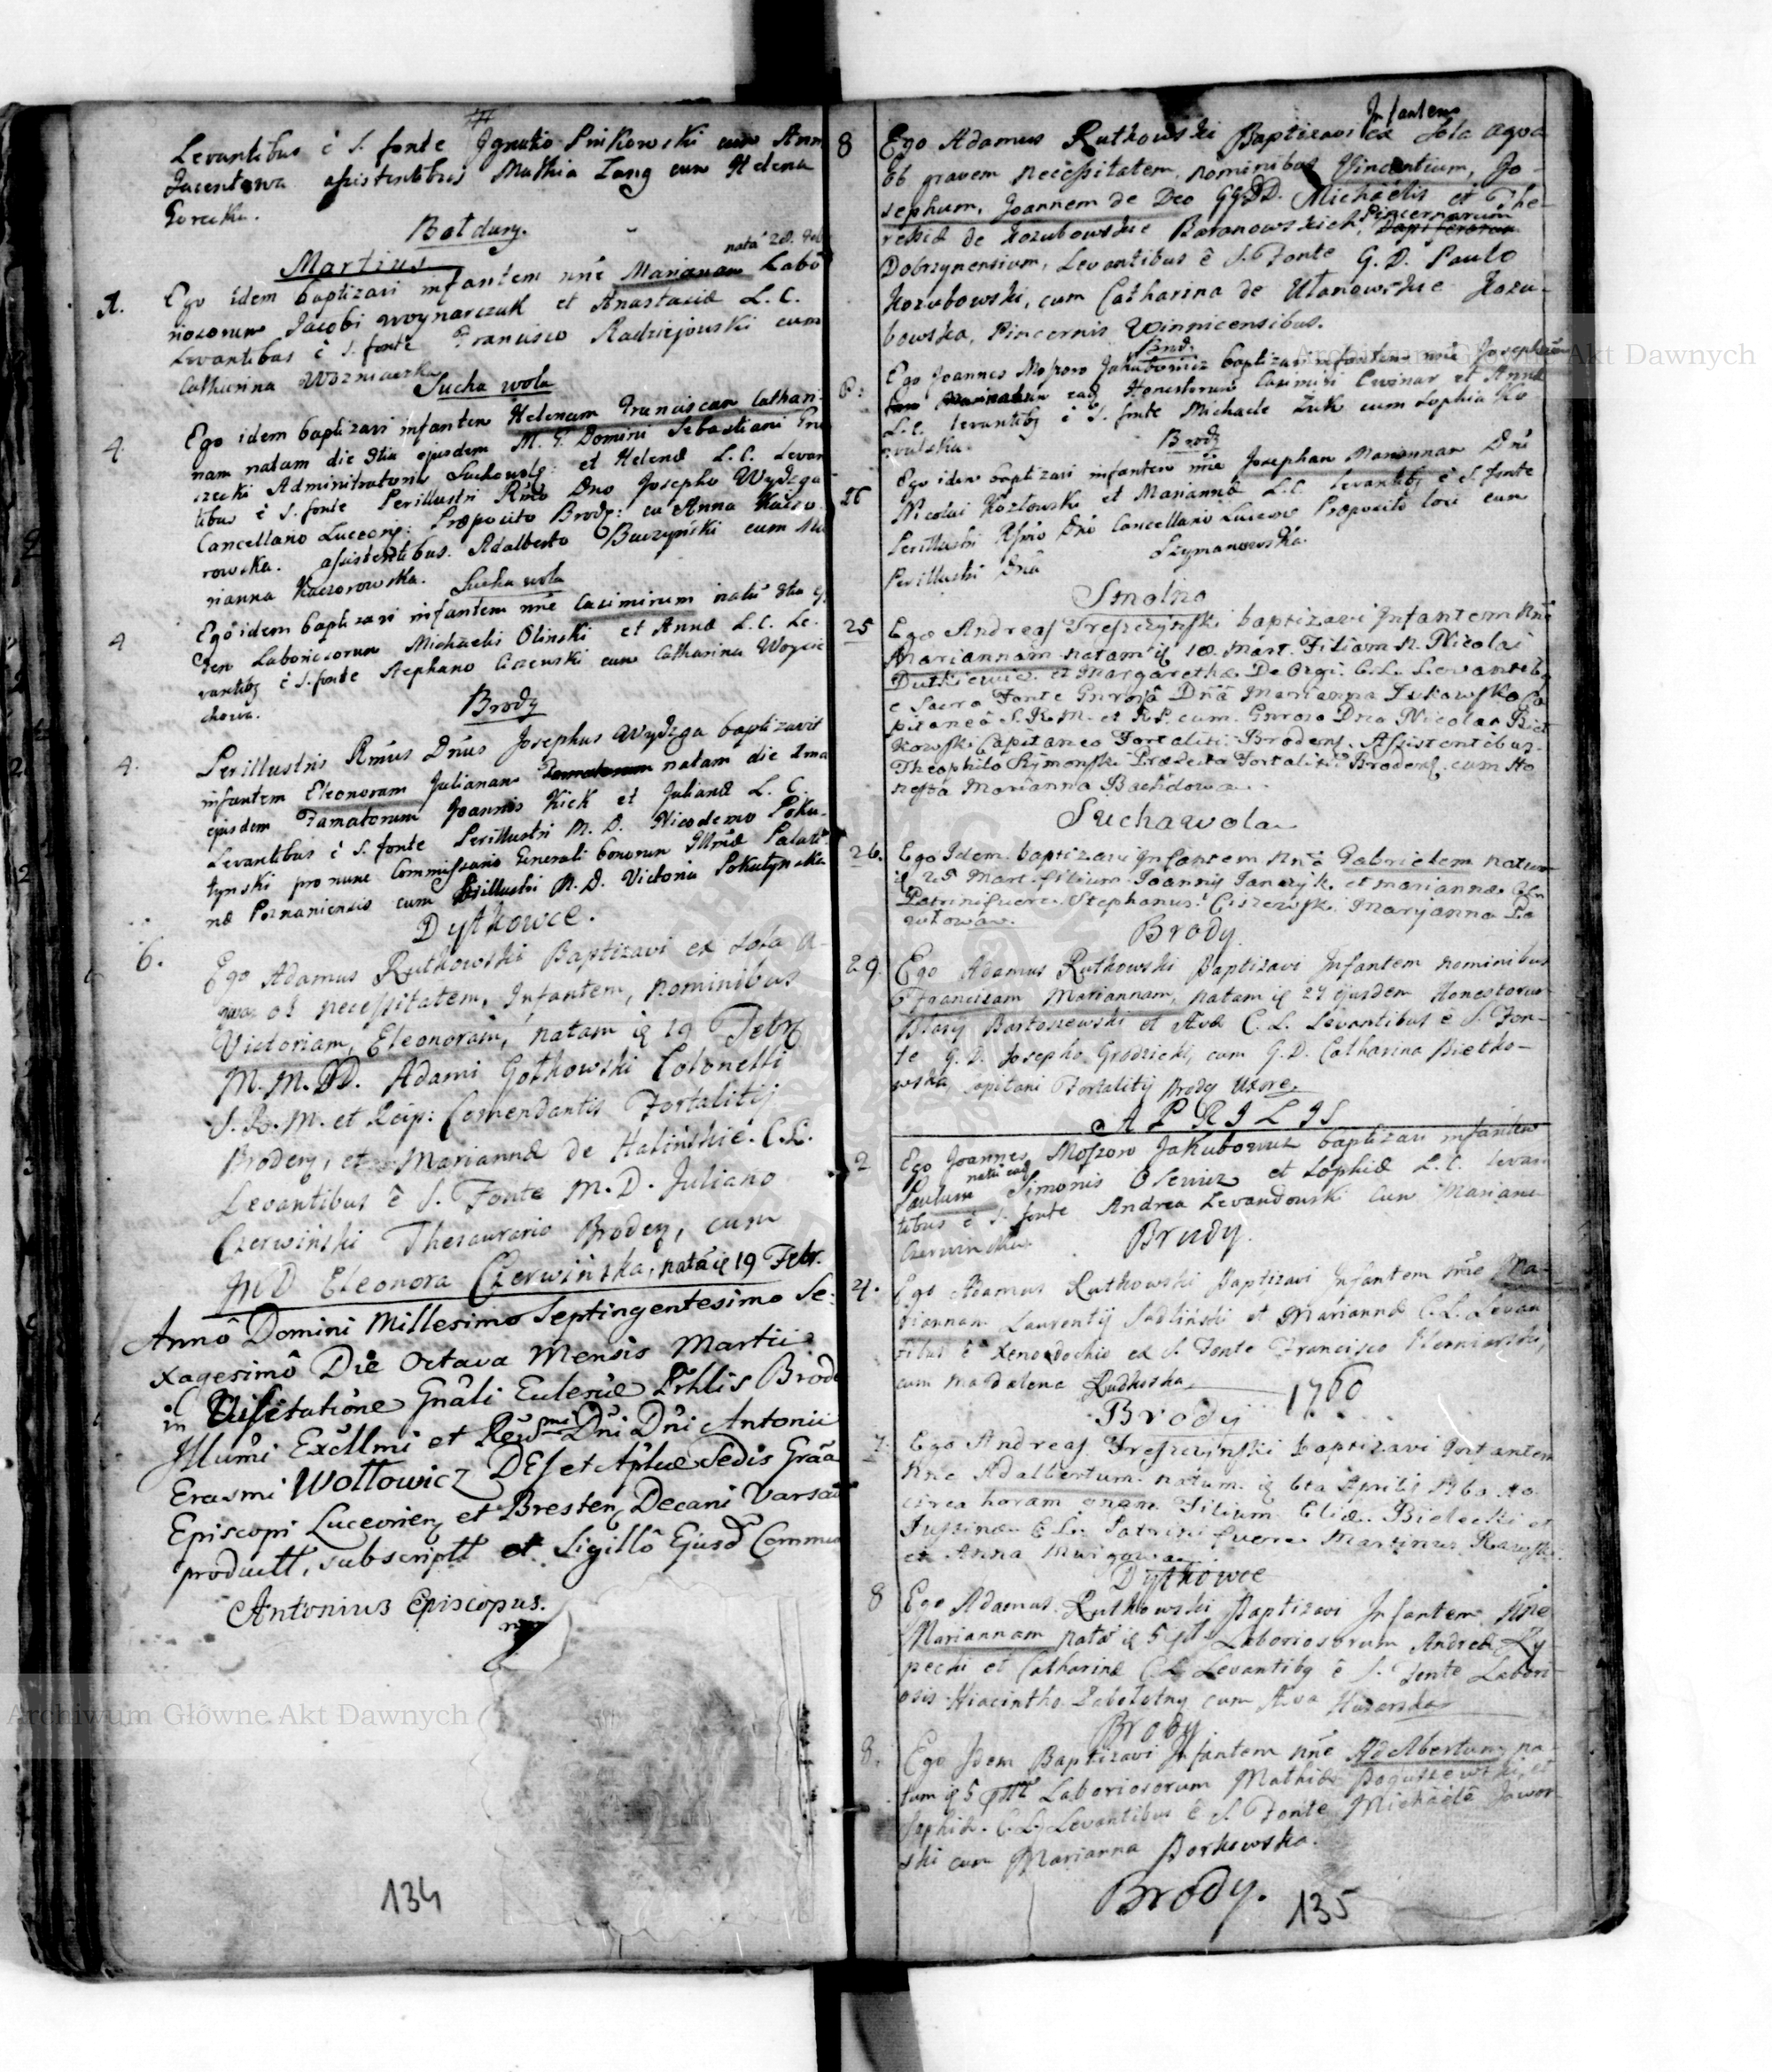 Levantibus è S. fonte Ignatio Pinkowski cum Ann
Jacentowa assistentibus Mathia Lang cum Helena
Gorecka.
Bołdury.
Martius
natã 28. Feb
1. Ego idem baptizavi infantem nñe Mariannam Labo
riosorum Jacobi Woynarczuk et Anastasiæ L. C.
Levantibus è S. fonte Francisco Radziejowski cum
Catharina Wozniacka
Sucha wola
4. Ego idem baptizavi infantem Helenam Franciscam Cathari-
nam natam die 3tia ejusdem M. G. Domini Sebastiani
szecki Administratoris Suchowol: et Helenæ L. C. Levan
tibus è S. fonte Perillustri Rñdo Dno Josepho Wydzga
Cancellario Luceori: Præposito Brod: cu Anna Kaczo
rowska. assistentibus. Adalberto Buczyński cum Ma
rianna Kaczorowska.
Sucha wola
4 Ego idem baptizavi infantem nñe Casimirum natũ 3tia
Laboriosorum Michaelis Olinski et Annæ L. C. Le-
vantibq è S. fonte Stephano Ciszewski cum Catharina Woycie
chowa.
Brody
4. Perillustris Rmus Dnus Josephus Wydzga baptizavit
infantem Eleonoram Julianam natam die 1ma
ejusdem Famatorum Joannis Kick et Julianæ L. C.
Levantibus è S. fonte Perillustri M. D. Nicodemo Poku-
tynski pro nunc Commissario Generali bonorum Illmæ Palati
næ Poznaniensis cum Perillustri M. D. Victoria Pokutynska
Dytkowce.
6. Ego Adamus Rutkowski Baptizavi ex sola a-
qua ob necessitatem, Infantem, nominibus
Victoriam, Eleonoram, natam ię 19 Febr
M. M. DD. Adami Gotkowski Colonelli
S. R. M. et Reip: Comendantis Fortalitij
Broden, et Mariannæ de Halińskie. C. L.
Levantibus ê S. Fonte M. D. Juliano
Czerwiński Thesaurario Broden, cum
M D Eleonora Czerwińska, natã ię 19 Febr.
Annô Domini Millesimo Septingentesimo Se:
xagesimô Die Octava Mensis Martii
in Visitatione Gnâli Ecclesiæ Pchlis Brod
Illumi Excllmi et Revsmi Dñi Dñi Antonii
Erasmi Wołłowicz DEI et Aplicæ Sedis Grãa
Episcopi Luceorien et Bresten Decani Varsa
productt, subscriptt et Sigillô Ejusd Commu
Antonius Episcopus.
mp
134
Infantem
8 Ego Adamus Rutkowski Baptizavi ex sola aqva
ob gravem necessitatem, nominibus Vincentium, Jo-
sephum, Joannem de Deo GGDD. Michaelis et The-
resiæ de Kozubowskie Baranowskich, Pincernarum Dapiferorum
Dobrzynensium, Levantibus ê S. Fonte G. D. Paulo
Kozubowski, cum Catharina de Ułanowskie Kozu-
bowska, Pincernis Winnicensibus.
Brod.
8: Ego Joannes Moszoro Jakubowicz baptizavi infantem nñe Josephum
Honestorum Casimiri Cwinar et Annæ
L. C. levantibq è S. fonte Michaele Żuk cum Sophia Ko
walska.
Brody
26 Ego idem baptizavi infantem nñe Josepham Mariannam Dni
Nicolai Kozłowski et Mariannæ L. C. levantibq è S. fonte
Perillustri Rsmo Dno Cancellario Luceor Præposito loci cum
Perillustri Dna Szymanowska.
Smolno
25 Ego Andreas Treszczyński baptizavi Infantem Nñe
Mariannam natam ię 18. Mart. Filiam N. Nicolai
Dutkiewicz et Margarethæ De Orgi. C. L. Levantib
e Sacro Fonte Gnrosâ Dñâ Marianna Łukowska Ca
pitaneâ S. R. M. et R. P. cum. Gnroso Dno Nicolao Biet
kowski Capitaneo Fortalitii Brodens. Assistentibus.
Theophilo Rymonski Præfecto Fortalitii Brodens. cum Ho
nesta Marianna Bachidowa.
Suchawola
26. Ego Idem baptizavi Infantem Nñe Gabrielem natum
ię 25 Mart. filium Joannis Janczyk et mariannæ
Patrini fuere Stephanus Ciszewsk. Maryanna Pa
włowa.
Brody
29. Ego Adamus Rutkowski Baptizavi Infantem nominibus
Franciscam Mariannam, natam ię 27 ejusdem Honestorum
Blasij Bartoszewski et Avæ C. L. Levantibus ê S. Fon-
te G. D. Josepho Grodzicki, cum G. D. Catharina Bietko-
wska, Capitani Fortalitij Brody Uxore,
APRILIS
2 Ego Joannes Moszoro Jakubowicz baptizavi infantem
Paulum natũ ead Simonis Olewicz et Sophiæ L. C. levan
tibus è S. fonte Andrea Levandowski cum Marianna
Czerwinska.
Brody.
4. Ego Adamus Rutkowski Baptizavi Infantem nñe Ma-
riannam Laurentij Sadliński et Mariannæ C. L. Levan
tibus ê Xenodochio ex S. Fonte Francisco
cum Magdalena Rudnska
1760
Brody
7. Ego Andreas Treszczyński baptizavi Infantem
Nñe Adalbertum natum ię 6ta Aprilis
circa horam Filium Eliæ Bielecki et
C. L. Patrini fuere Martinus
et Anna
Dytkowce
8 Ego Adamus Rutkowski Baptizavi Infantem Nñe
Mariannam natã ię 5 Laboriosorum Andreæ Ry
pecki et Catharinæ C. L. Levantibq ê S. Fonte Labori
osis Hiacintho Zabołotny cum Ava Huzarska
Brody
8. Ego Idem Baptizavi Infantem nñe Adalbertum na-
tum ię 5 Laboriosorum Mathiæ Boguszowski, et
Sophiæ. C. L. Levantibus ê S. Fonte Michaële Jawor-
ski cum Marianna Borkowska.
Brody.
135
Archiwum Główne Akt Dawnych
Archiwum Główne Akt Dawnych